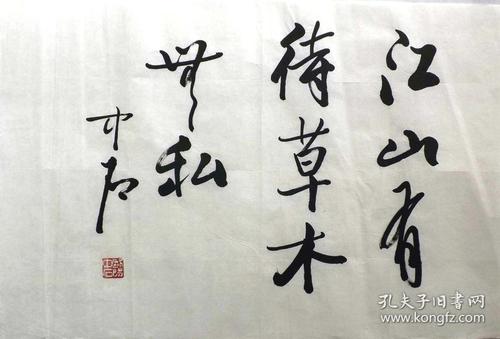 江山有
待草木
無私
中石
孔夫子旧书网
www.kongfz.com